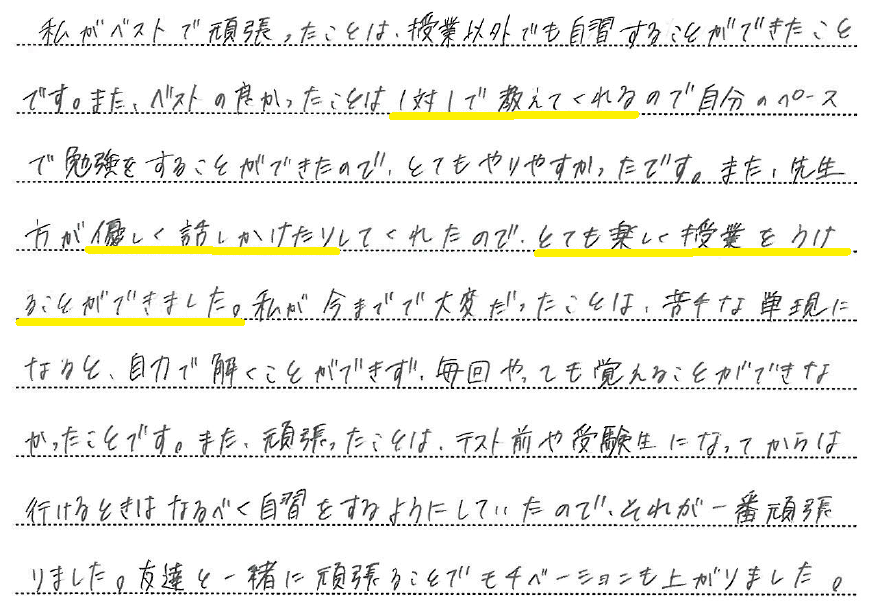 私がベストで頑張ったことは、授業以外でも自習することができたこと
です。また、ベストの良かったことは1対1で教えてくれるので自分のペース
で勉強をすることができたので、とてもやりやすかったです。また、先生
方が優しく話しかけたりしてくれたので、とても楽しく授業をうけ
ることができました。私が今までで大変だったことは、苦手な単現に
なると、自力で解くことができず、毎回やっても覚えることができな
かったことです。また、頑張ったことは、テスト前や受験生になってからは
行けるときはなるべく自習をするようにしていたので、それが一番頑張
りました。友達と一緒に頑張ることでモチベーションも上がりました。